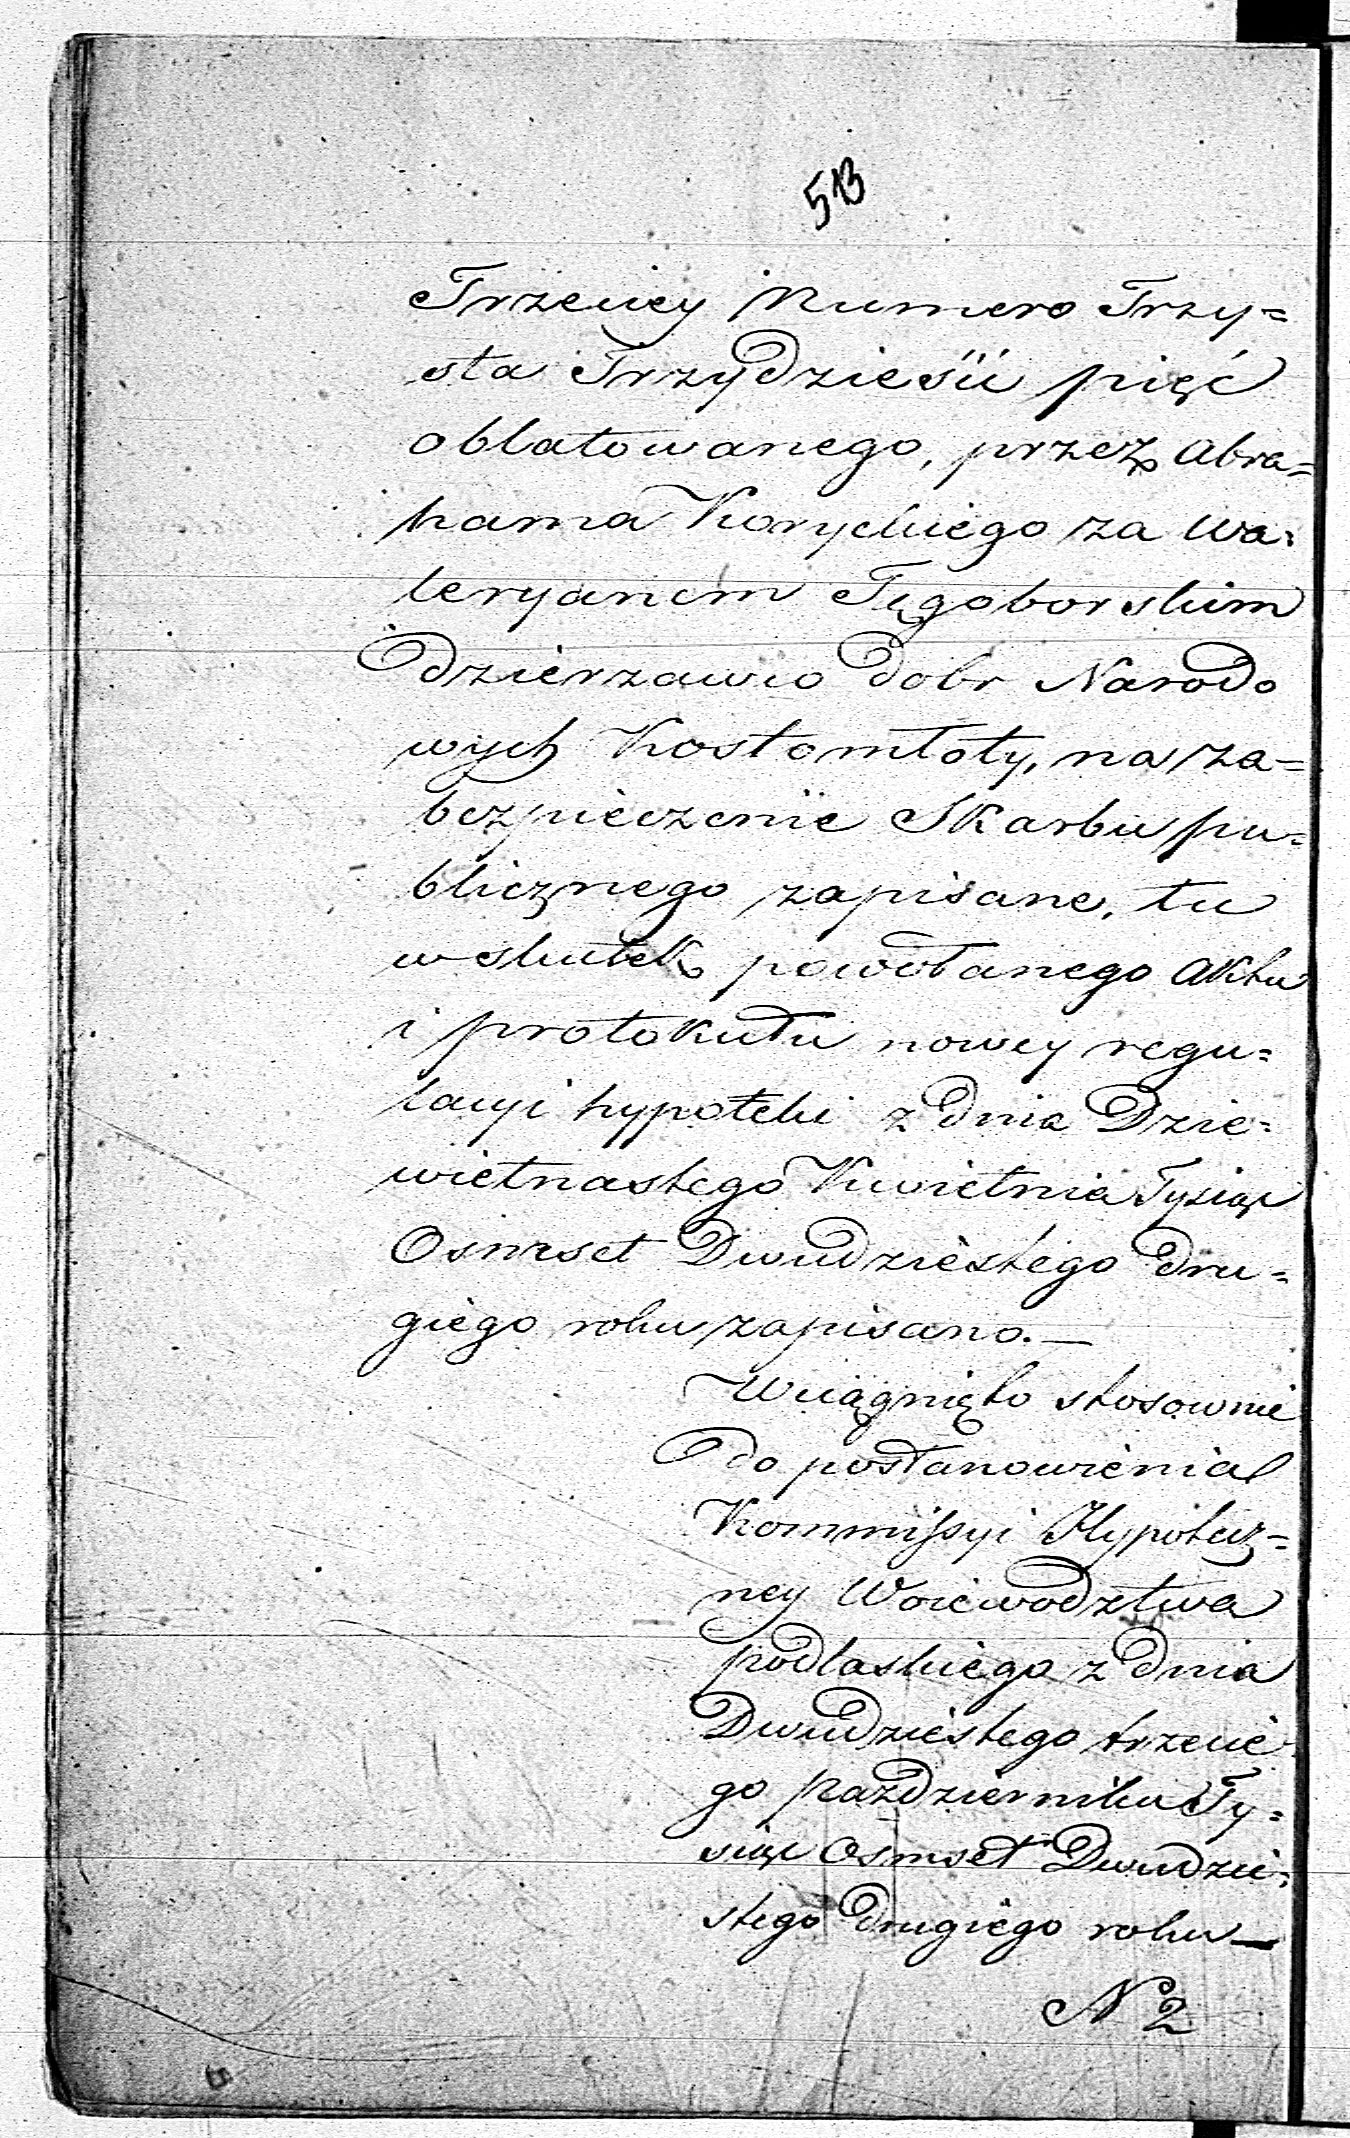 513
Trzeciey Numero Trzy=
sta Trzydzieści pięć
oblatowanego, przez Abra=
hama Koryckiego za Wa=
leryanem Tęgoborskim
Dzierzawcą dobr Narodo
wych Kostomłoty, na za=
bezpieczenie Skarbu pu=
blicznego zapisane, tu
w skutek powołanego Aktu
i protokułu nowey regu=
lacyi hypoteki z dnia Dzie=
wietnastego Kwietnia Tysiąc
Osmset Dwudziestego dru=
giego roku zapisano.—
Wciągnięto stosownie
do postanowienia
Kommissyi Hypotecz=
ney Woiewodztwa
podlaskiego z dnia
Dwudziestego trzecie
go pazdziernika Ty=
siąc Osmset Dwudzie=
stego drugiego roku—
N 2